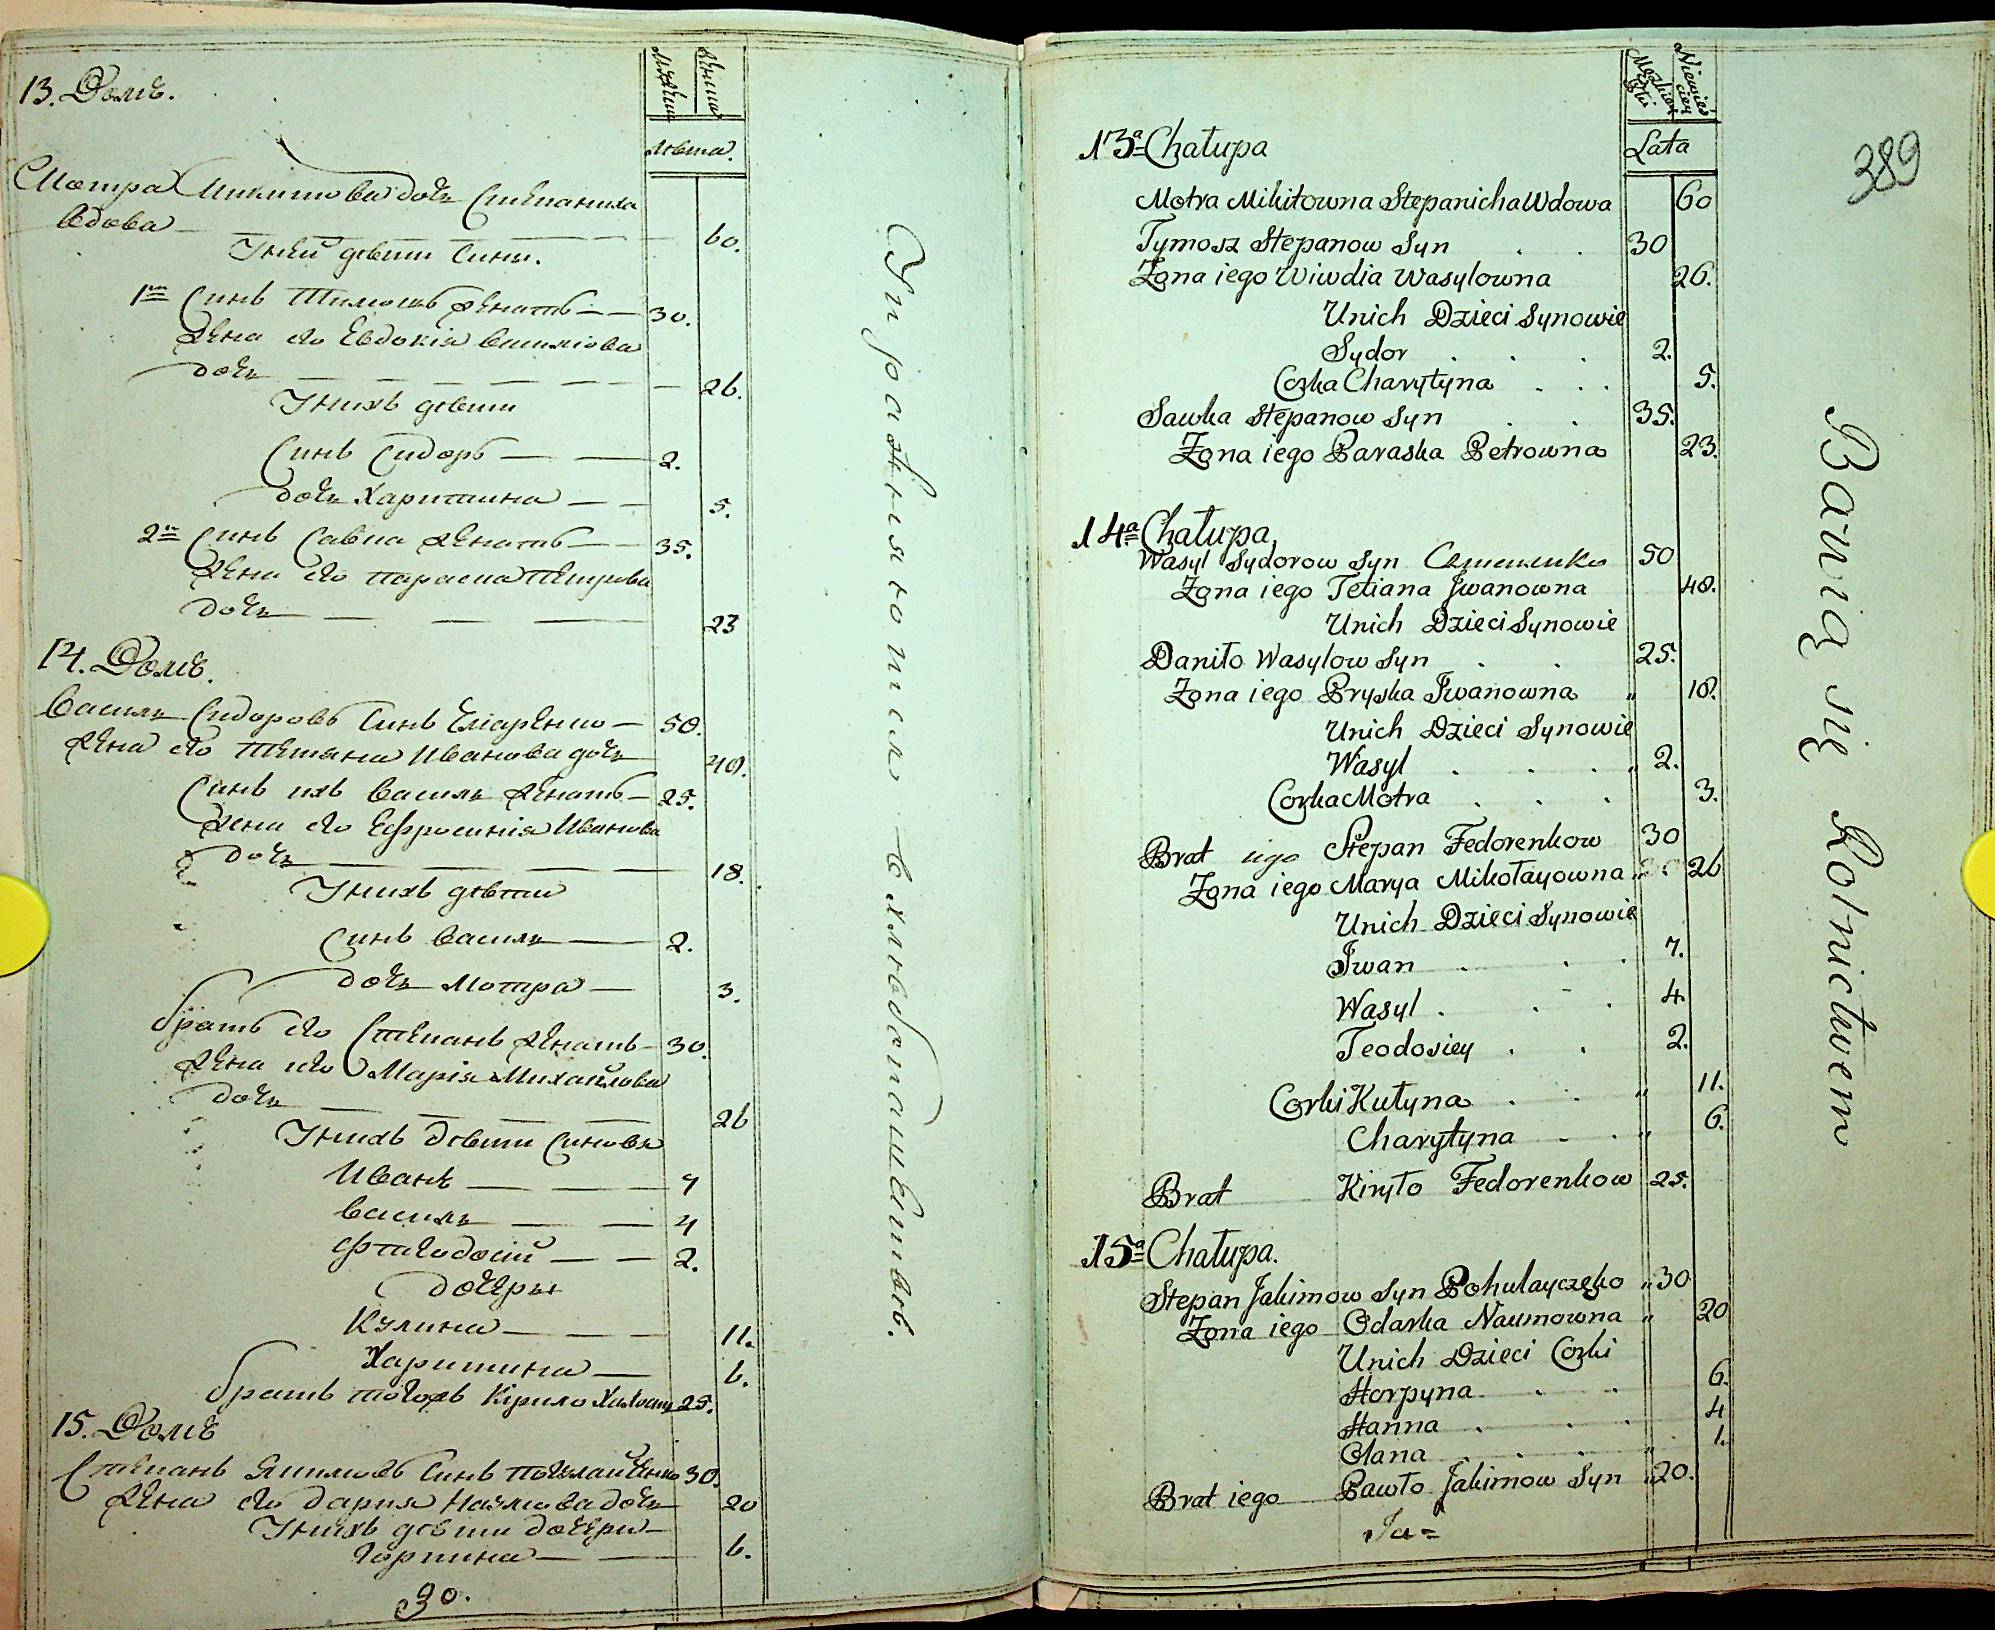 13. Домъ.
мужеска
женска
лѣта.
Мотра Микитова дочь Степаниха
вдова 60.
У ней дѣти сини.
1й Синъ Тимошъ женатъ 30.
Жена его Евдокія Василіова
дочь 26.
У нихъ дѣти
Синъ Сидоръ 2.
дочь Харитина 5.
2й Синъ Савка женатъ 35.
Жена его Параска Петрова
дочь 23
14. Домъ.
Василь Сидоровъ Синъ 50.
Жена его Тетяна Иванова дочь 48.
Синъ ихъ Василь женатъ 25.
Жена его Ефросинія Иванова
дочь 18.
У нихъ дѣти
Синъ Василь 2.
дочь Мотра 3.
братъ его Степанъ женатъ 30.
Жена его Марія Михайлова
дочь 26
У нихъ дѣти Синовя
Иванъ 7
Василь 4
Фтеодосій 2.
дочеры
Кулина 11.
Харитина 6.
братъ тогожъ Кірило Холост 25.
15. Домъ
Степанъ Якимовъ Синъ Погулайченко 30.
Жена его Дария Наумова дочь 20
У нихъ дѣти дочери
Горпина 6.
30.
Упражняютися в хлѣбопашенствѣ.
Męzkiey Płci
Niewieściey
Lata
389
13a Chałupa
Motra Mikitowna Stepanicha Wdowa 60
Tymosz Stepanow Syn . . 30
Żona iego Wiwdia Wasylowna 26.
Unich Dzieci Synowie
Sydor . . . 2.
Corka Charytyna . . . 5.
Sawka Stepanow Syn . . 35.
Żona iego Paraska Petrowna 23.
14a Chałupa
Wasyl Sydorow Syn 50
Żona iego Tetiana Jwanowna 48.
Unich Dzieci Synowie
Daniło Wasylow Syn . . 25.
Żona iego Pryska Jwanowna „ 18.
Unich Dzieci Synowie
Wasyl . . . „ 2.
Corka Motra . . . 3.
Brat iego Stepan Fedorenkow 30
Żona iego Marya Mikołayowna „ 26
Unich Dzieci Synowie
Jwan . . . 7.
Wasyl . . . 4
Teodosiey . . 2.
Corki Kułyna . . „ 11.
Charytyna . . „ 6.
Brat Kiryło Fedorenkow 25.
15a Chałupa.
Stepan Jakimow Syn Pohulayczęko „ 30
Żona iego Odarka Naumowna „ 20
Unich Dzieci Corki
Horpyna . . 6.
Hanna . . . 4
Olana . . . „ 1.
Brat iego Pawło Jakimow Syn „ 20.
Ja=
Bawią się Rolnictwem